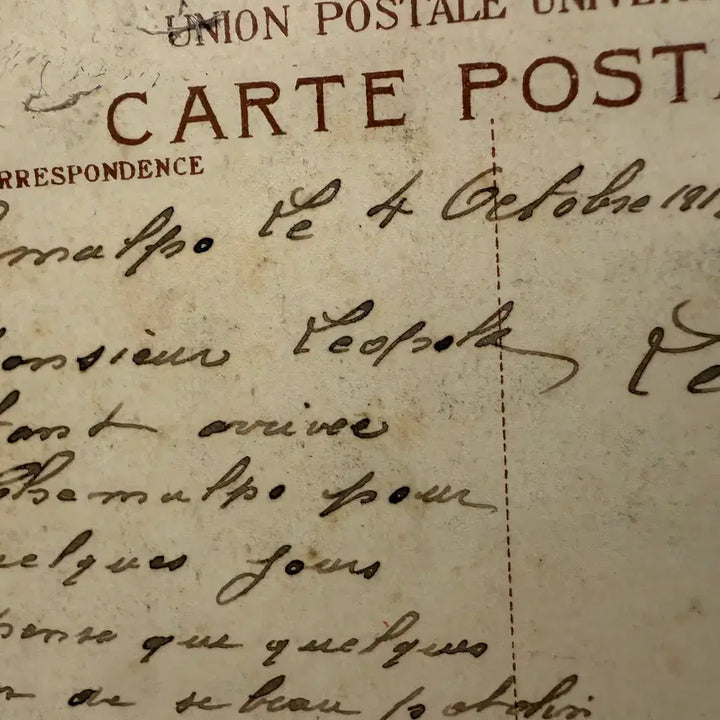 UNION POSTALE UNIVER
CARTE POSTA
RRESPONDENCE
emulpo Le 4 Octobre 191
onsieur Leopold
tant arrivée
Chemulpo pour
uelques jours
pense que quelques
de se beau